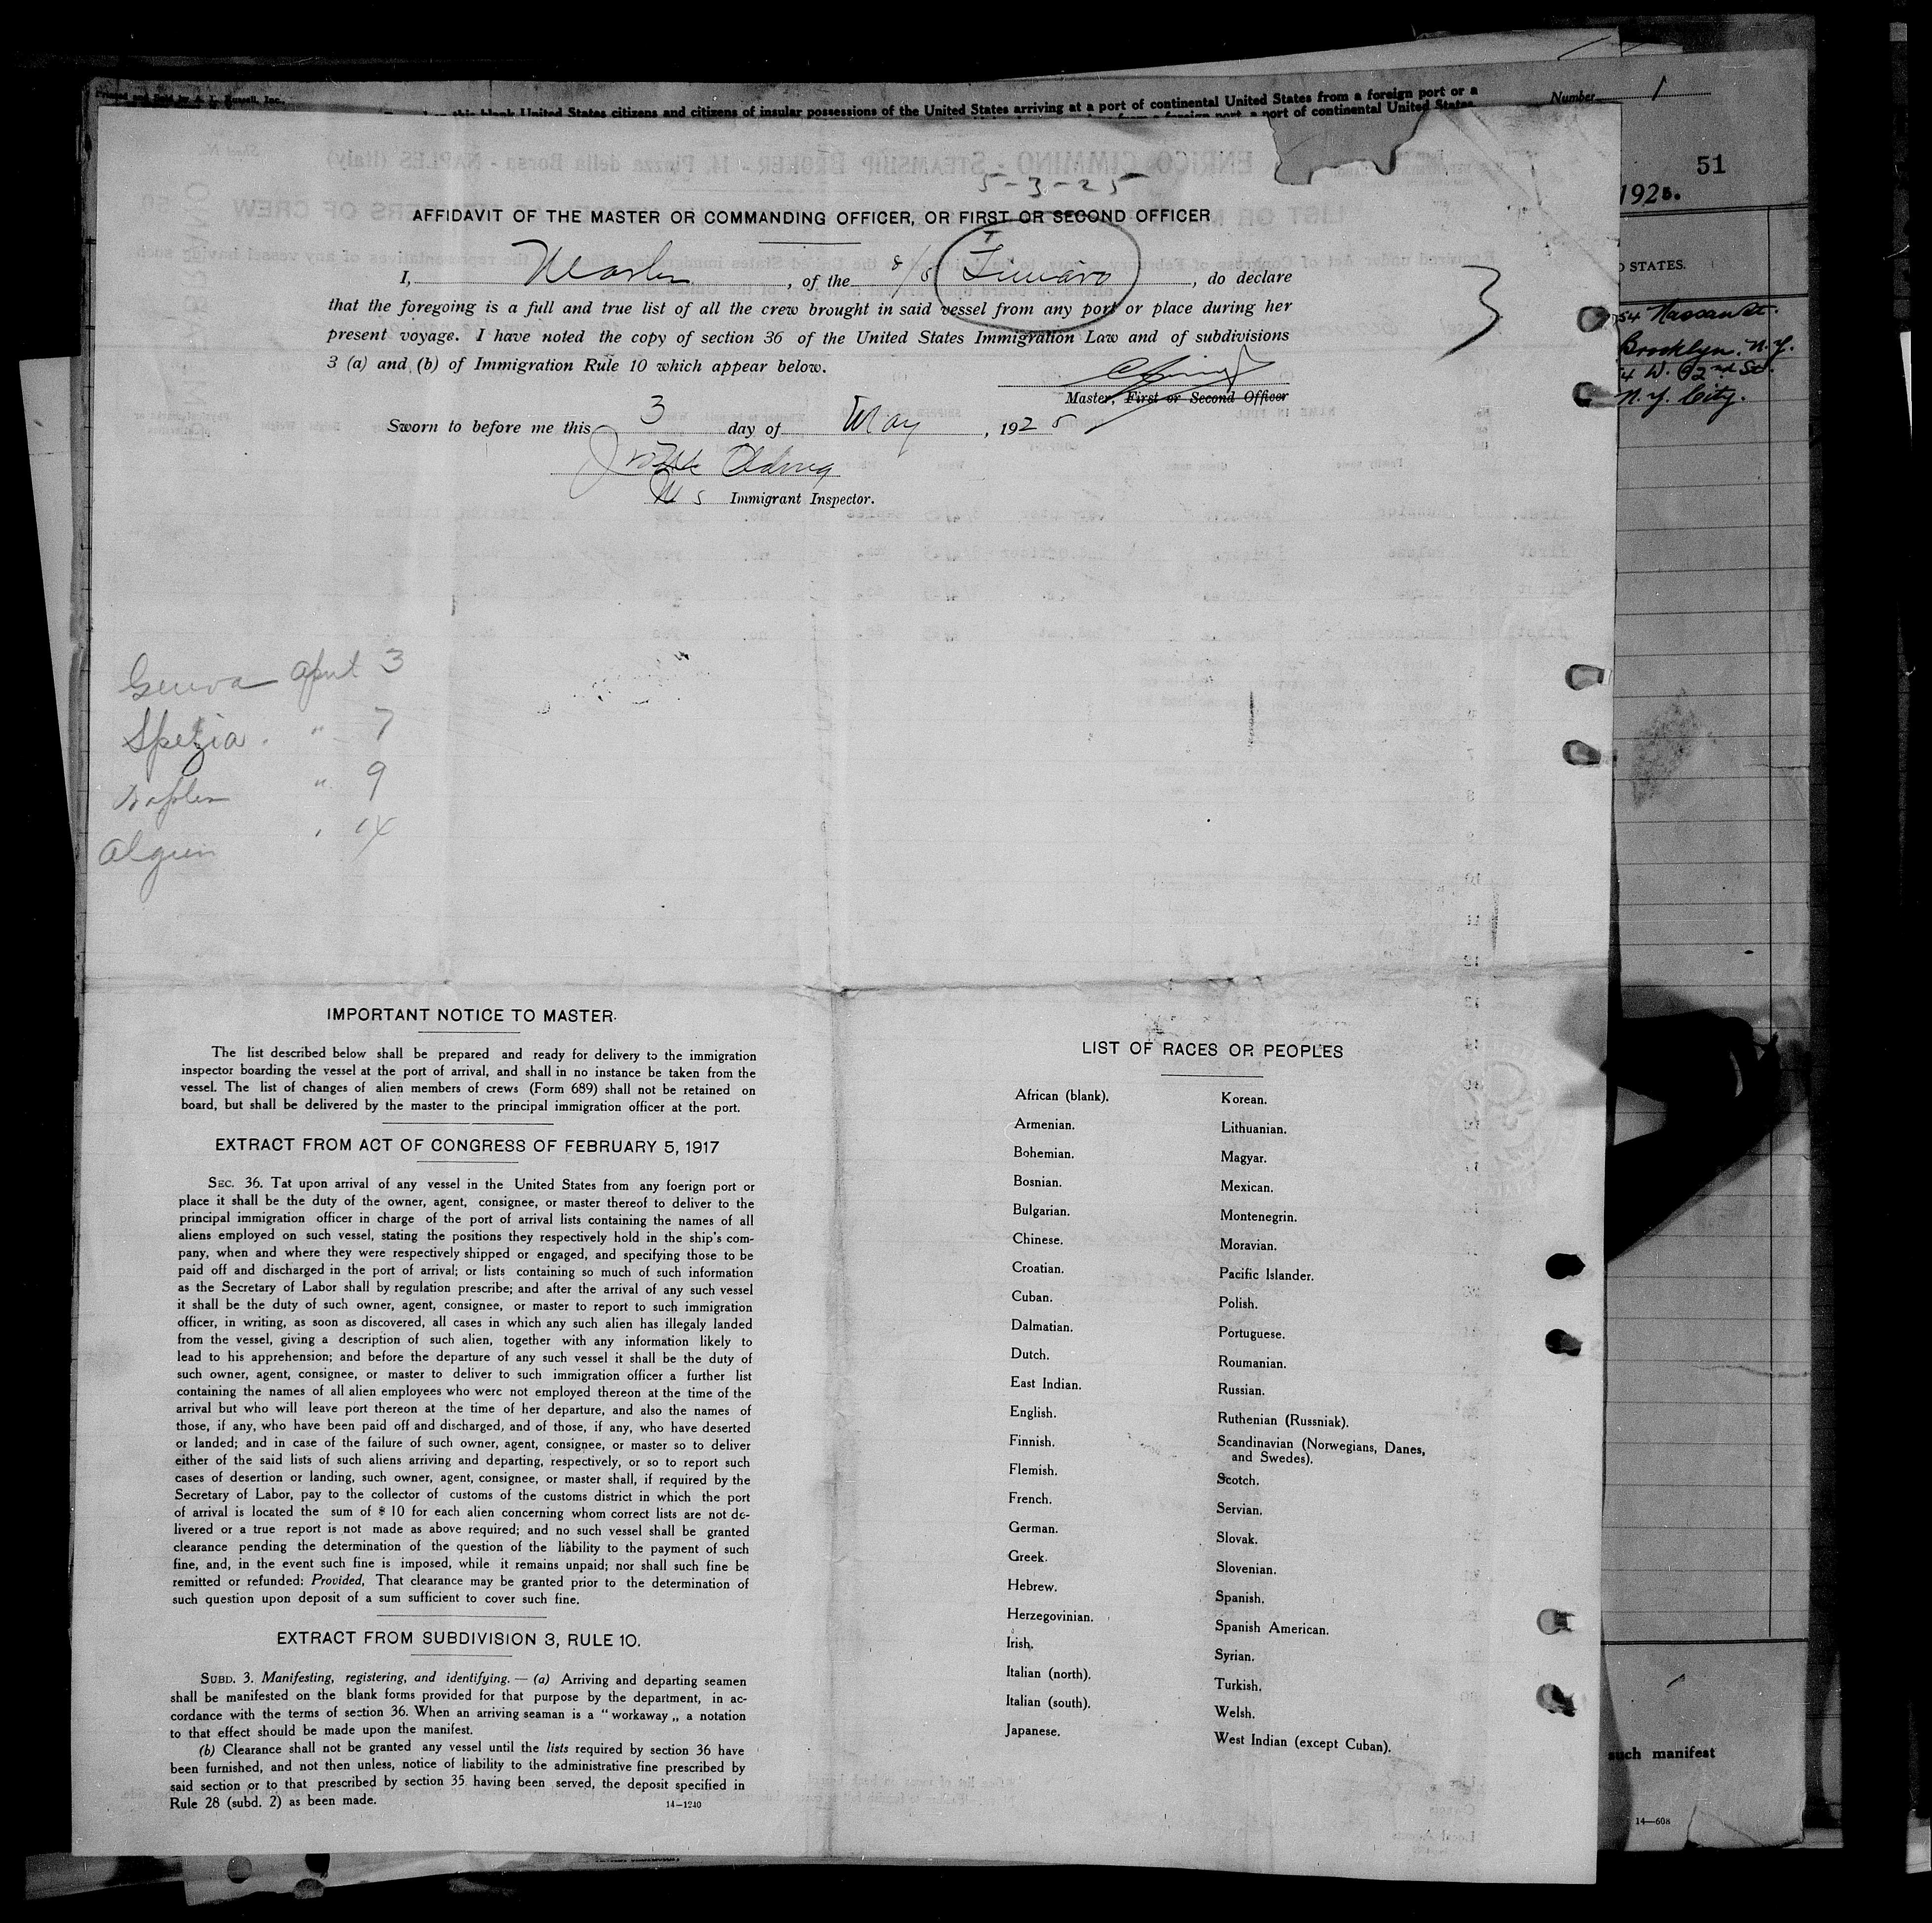 Printed and Sold by A. L. Russell, Inc.
this blank United States citizens and citizens of insular possessions of the United States arriving at a port of continental United States from a foreign port or a
a port of continental United States
Number 1
51
1925.
D STATES.
54 Nassau St.
Brooklyn. N.Y.
4 W. 92nd St.
N.Y. City.
such manifest
14—608
5-3-25
AFFIDAVIT OF THE MASTER OR COMMANDING OFFICER, OR FIRST OR SECOND OFFICER
I, Master, of the s/s, do declare
that the foregoing is a full and true list of all the crew brought in said vessel from any port or place during her
present voyage. I have noted the copy of section 36 of the United States Immigration Law and of subdivisions
3 (a) and (b) of Immigration Rule 10 which appear below.
3
Master, First or Second Officer
Sworn to before me this 3 day of May, 1925
U S Immigrant Inspector.
Genoa April 3
Spezia. " 7
Naples " 9
Algiers " 14
IMPORTANT NOTICE TO MASTER.
The list described below shall be prepared and ready for delivery to the immigration
inspector boarding the vessel at the port of arrival, and shall in no instance be taken from the
vessel. The list of changes of alien members of crews (Form 689) shall not be retained on
board, but shall be delivered by the master to the principal immigration officer at the port.
EXTRACT FROM ACT OF CONGRESS OF FEBRUARY 5, 1917
SEC. 36. Tat upon arrival of any vessel in the United States from any foerign port or
place it shall be the duty of the owner, agent, consignee, or master thereof to deliver to the
principal immigration officer in charge of the port of arrival lists containing the names of all
aliens employed on such vessel, stating the positions they respectively hold in the ship's com-
pany, when and where they were respectively shipped or engaged, and specifying those to be
paid off and discharged in the port of arrival; or lists containing so much of such information
as the Secretary of Labor shall by regulation prescribe; and after the arrival of any such vessel
it shall be the duty of such owner, agent, consignee, or master to report to such immigration
officer, in writing, as soon as discovered, all cases in which any such alien has illegaly landed
from the vessel, giving a description of such alien, together with any information likely to
lead to his apprehension; and before the departure of any such vessel it shall be the duty of
such owner, agent, consignee, or master to deliver to such immigration officer a further list
containing the names of all alien employees who were not employed thereon at the time of the
arrival but who will leave port thereon at the time of her departure, and also the names of
those, if any, who have been paid off and discharged, and of those, if any, who have deserted
or landed; and in case of the failure of such owner, agent, consignee, or master so to deliver
either of the said lists of such aliens arriving and departing, respectively, or so to report such
cases of desertion or landing, such owner, agent, consignee, or master shall, if required by the
Secretary of Labor, pay to the collector of customs of the customs district in which the port
of arrival is located the sum of $ 10 for each alien concerning whom correct lists are not de-
livered or a true report is not made as above required; and no such vessel shall be granted
clearance pending the determination of the question of the liability to the payment of such
fine, and, in the event such fine is imposed, while it remains unpaid; nor shall such fine be
remitted or refunded: Provided, That clearance may be granted prior to the determination of
such question upon deposit of a sum sufficient to cover such fine.
EXTRACT FROM SUBDIVISION 3, RULE 10.
SUBD. 3. Manifesting, registering, and identifying. — (a) Arriving and departing seamen
shall be manifested on the blank forms provided for that purpose by the department, in ac-
cordance with the terms of section 36. When an arriving seaman is a " workaway „ a notation
to that effect should be made upon the manifest.
(b) Clearance shall not be granted any vessel until the lists required by section 36 have
been furnished, and not then unless, notice of liability to the administrative fine prescribed by
said section or to that prescribed by section 35 having been served, the deposit specified in
Rule 28 (subd. 2) as been made.
14—1240
LIST OF RACES OR PEOPLES
African (blank).
Armenian.
Bohemian.
Bosnian.
Bulgarian.
Chinese.
Croatian.
Cuban.
Dalmatian.
Dutch.
East Indian.
English.
Finnish.
Flemish.
French.
German.
Greek.
Hebrew.
Herzegovinian.
Irish.
Italian (north).
Italian (south).
Japanese.
Korean.
Lithuanian.
Magyar.
Mexican.
Montenegrin.
Moravian.
Pacific Islander.
Polish.
Portuguese.
Roumanian.
Russian.
Ruthenian (Russniak).
Scandinavian (Norwegians, Danes,
and Swedes).
Scotch.
Servian.
Slovak.
Slovenian.
Spanish.
Spanish American.
Syrian.
Turkish.
Welsh.
West Indian (except Cuban).